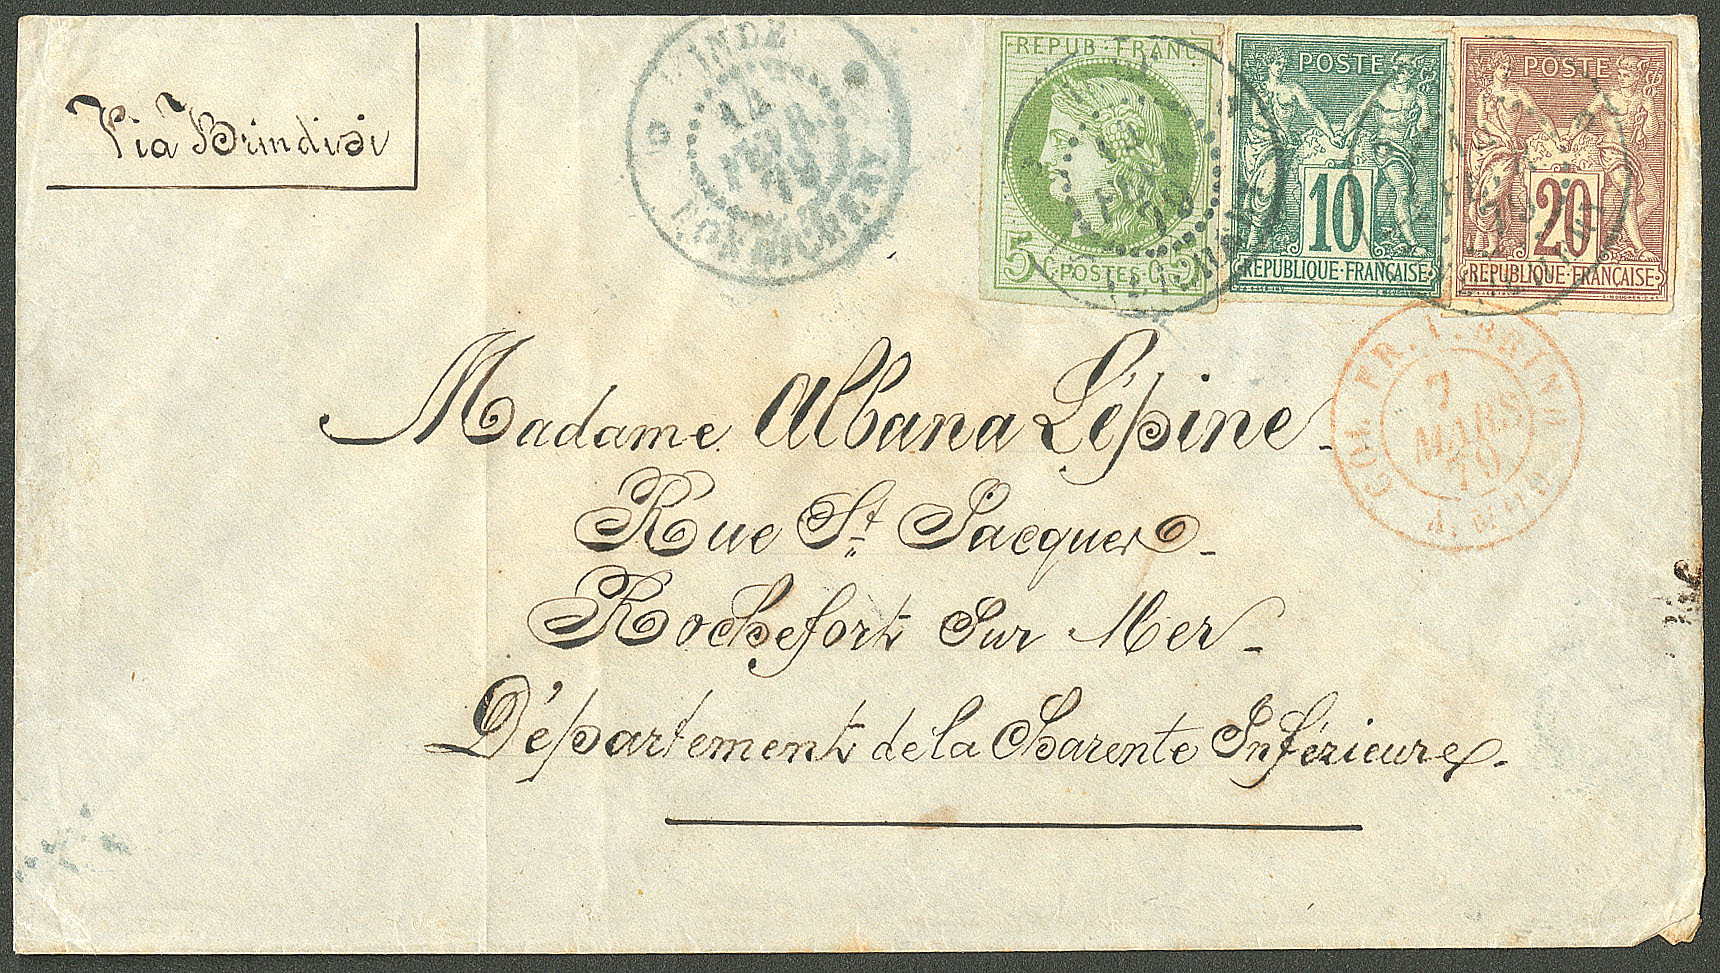 Via Brindisi
INDE
14
FEVR.
79
PONDICHERY
REPUB·FRANC
5 C·POSTES·C 5
POSTE
10
REPUBLIQUE·FRANÇAISE
POSTE
20
REPUBLIQUE·FRANÇAISE
COL. FR. V. BRIND.
7
MARS
79
Madame Albana Lépine.
Rue St Jacques.
Rochefort Sur Mer.
Département de la Charente Inférieure.